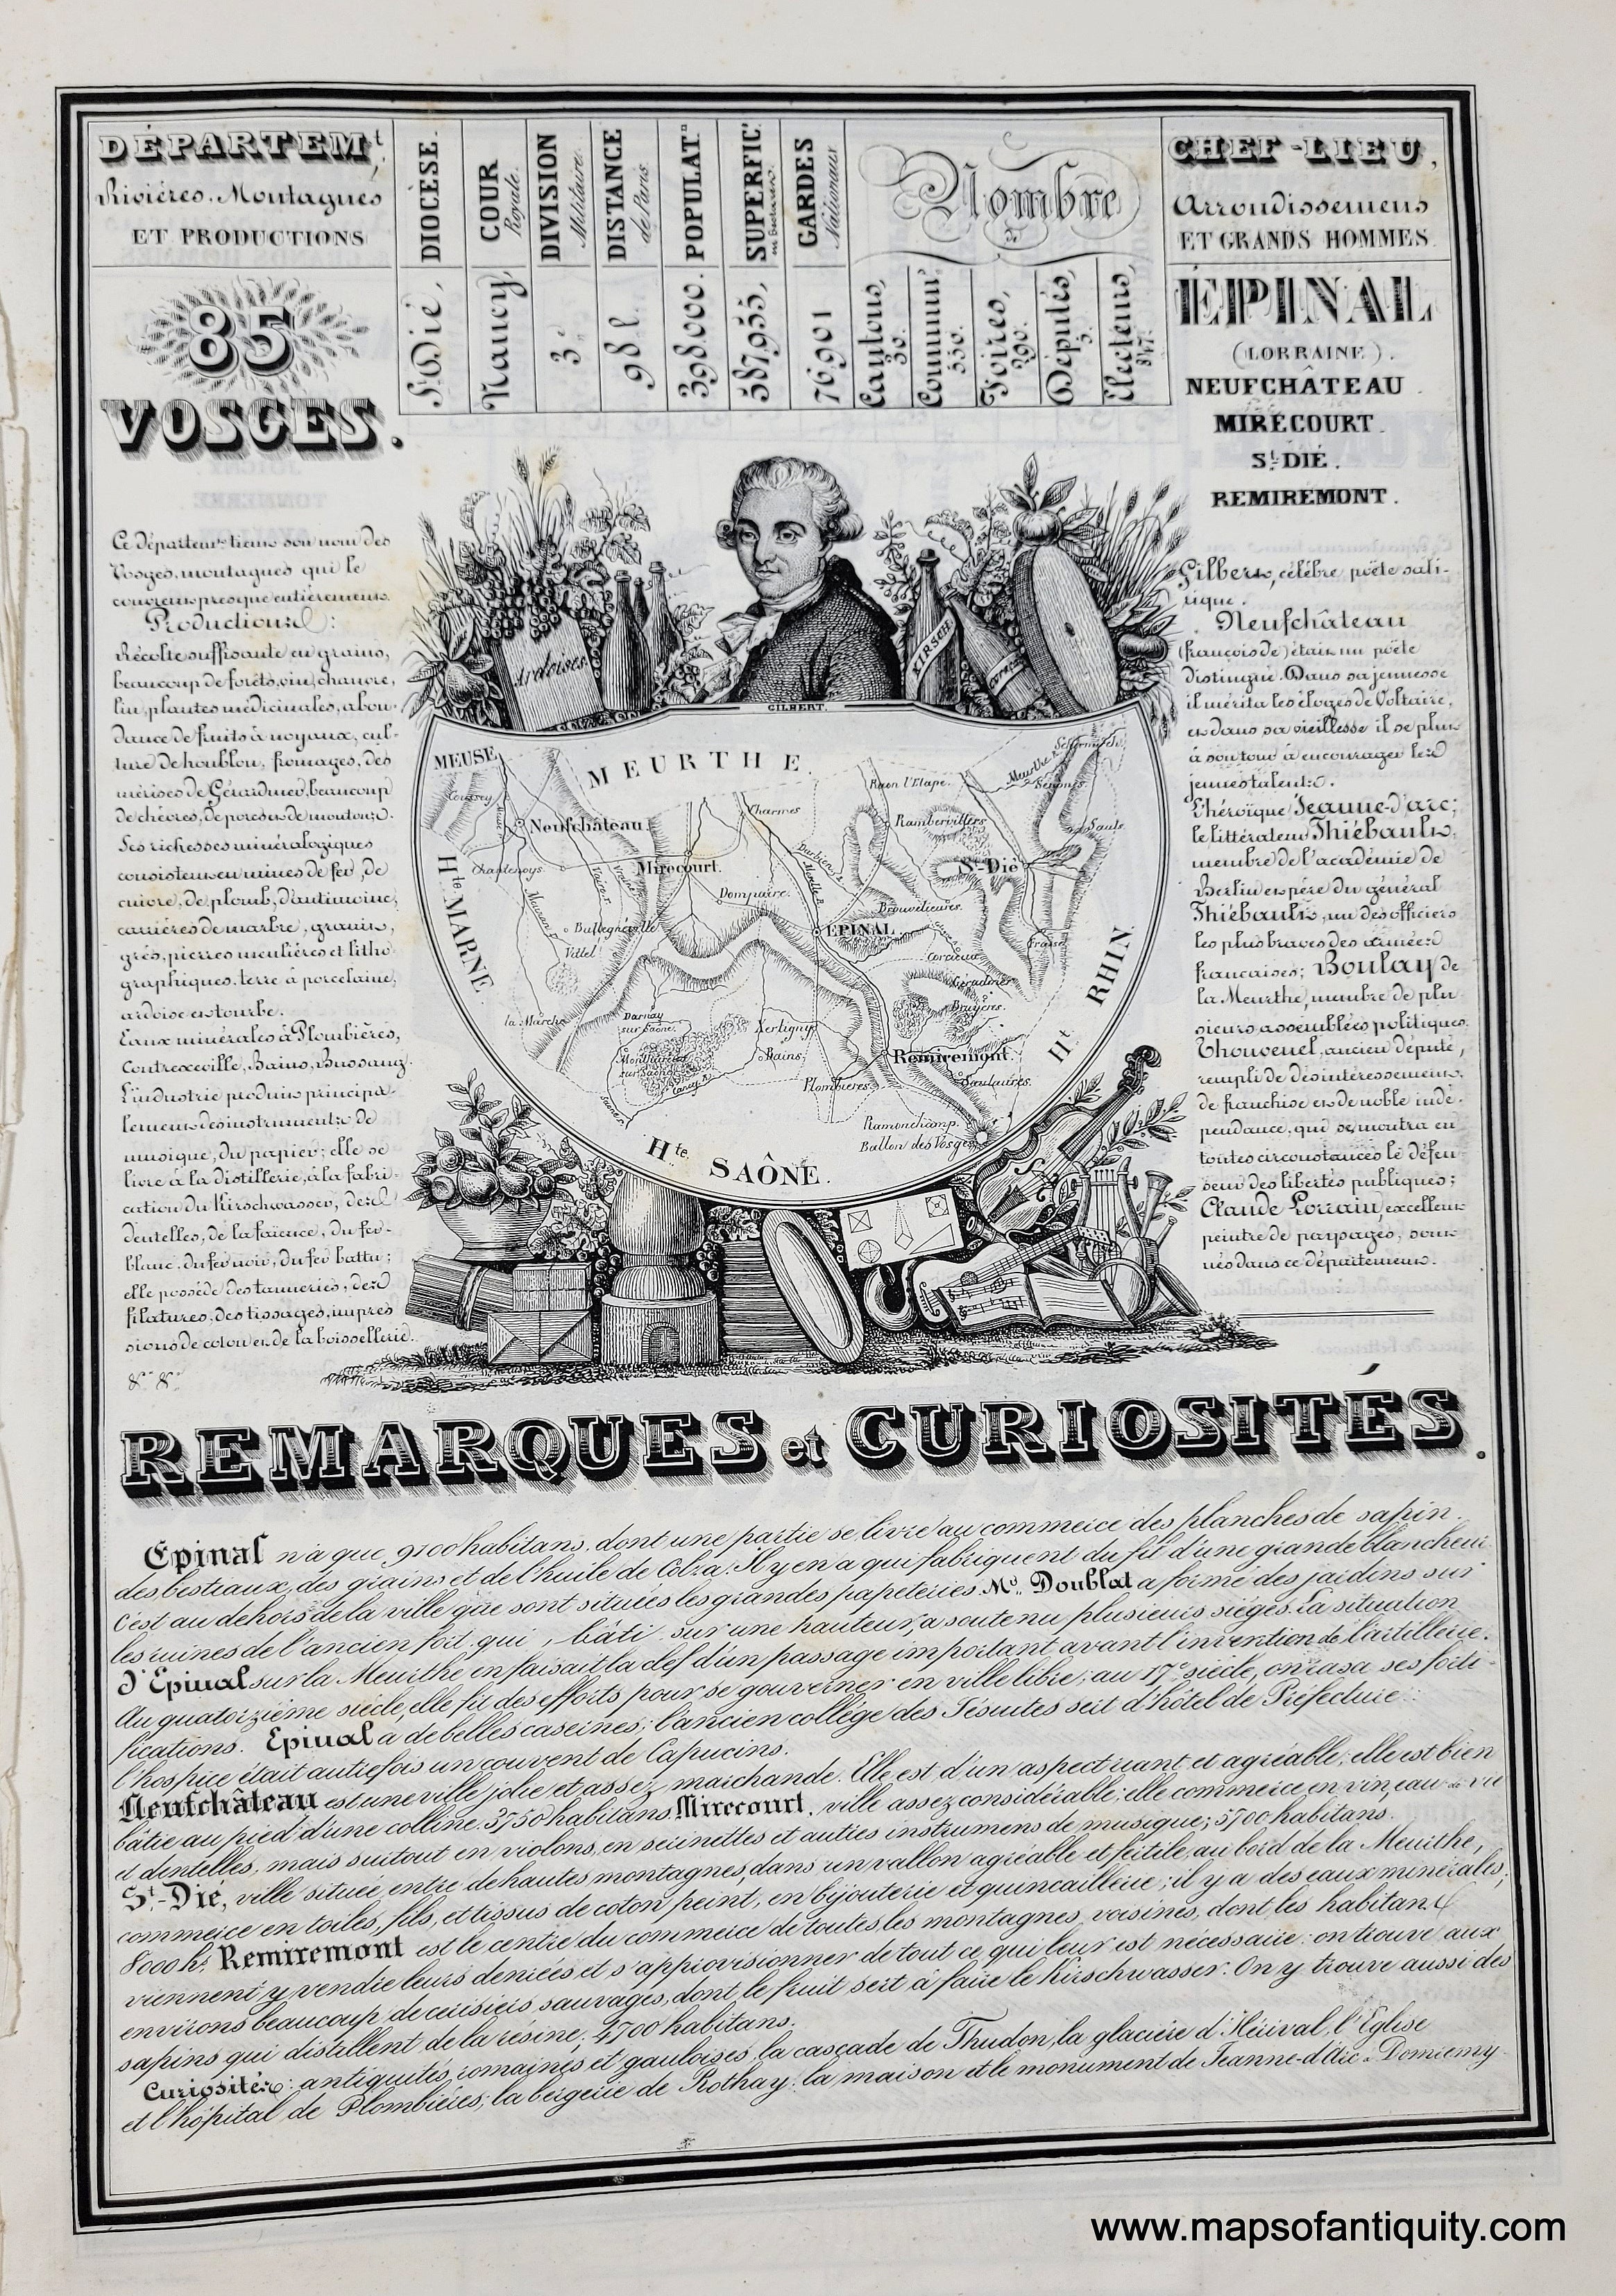 DÉPARTEM.t
Rivières. Montagnes
ET PRODUCTIONS
DIOCÈSE.
COUR
Royale.
DIVISION
Militaire.
DISTANCE
de Paris.
POPULAT.n
SUPERFIC.
en hectares.
GARDES
Nationaux
Nombre
de
CHEF-LIEU,
Arrondissemens
ET GRANDS HOMMES.
St Dié,
Nancy
3.e
98 l.
398000.
587,955,
76,901
Cantons,
30.
Commun.
550.
Foires,
290.
Députés,
5.
Electeurs,
85
VOSGES.
ÉPINAL
(LORRAINE).
NEUFCHÂTEAU.
MIRECOURT.
St. DIÉ.
REMIREMONT.
Ce départemt. tient son nom des
Vosges, montagnes qui le
couvrent presque entièrement.
Productions:
Récolte suffisante en grains,
beaucoup de forêts, vin, chanvre,
lin, plantes médicinales, abon-
dance de fruits à noyaux, cul-
ture de houblon, fromages, des
mérises de Gérardmer, beaucoup
de chèvres, de porcs et de moutons.
Ses richesses minéralogiques
consistent en mines de fer, de
cuivre, de plomb, d'antimoine,
carrières de marbre, granit,
grès, pierres meulières et litho-
graphiques, terre à porcelaine,
ardoise et tourbe.
Eaux minérales à Plombières,
Contrexeville, Bains, Bussang.
L'industrie produit principa-
lement des instruments de
musique, du papier; elle se
livre à la distillerie, à la fabri-
cation du Kirschwasser, des
dentelles, de la faïence, du fer-
blanc, du fer noir, du fer battu;
elle possède des tanneries, des
filatures, des tissages, impres
sions de color et de la boissellerie.
&c. &c.
Gilbert, célèbre poëte sati-
rique.
Neufchâteau
(françois de) était un poëte
distingué. Dans sa jeunesse
il mérita les éloges de Voltaire,
et dans sa vieillesse il se plut
à son tour à encourager les
jeunes talents.
L'héroïque Jeanne-d'arc;
le littérateur Thiébault,
membre de l'académie de
Berlin et père du général
Thiébault, un des officiers
les plus braves des armées
françaises; Boulay de
la Meurthe, membre de plu
sieurs assemblées politiques.
Thouvenel, ancien député,
rempli de désintéressement,
de franchise et de noble indé-
pendance, qui se montra en
toutes circonstances le défen-
seur des libertés publiques;
Claude Lorrain, excellent
peintre de paysages, sont
nés dans ce département.
Ardoises.
KIRSCH
GILBERT.
MEUSE
MEURTHE
Hte. MARNE
Ht. RHIN
Hte. SAÔNE.
Coussey
Neufchâteau
Chatenoys
Mirecourt.
Charmes
Raon l'Etape.
Rambervillers
Senones
Meurthe R.
Saulx
St-Dié
Dompaire.
Moselle R.
Vraine R.
Bullegnéville
Vittel
Brouvelieures.
ÉPINAL
Corcieux
Fraize
Gérardmer
Bruyères.
la Marche
Darnay
sur Saône.
Monthureux
sur Saône
Xertigny
Bains.
Plombières.
Remiremont.
Saulxures.
Ramonchamp.
Ballon des Vosges
REMARQUES et CURIOSITÉS.
Epinal n'a que 9100 habitans, dont une partie se livre au commerce des planches de sapin.
des bestiaux, des grains et de l'huile de Colza. Il y en a qui fabriquent du fil d'une grande blancheur
c'est au dehors de la ville que sont situées les grandes papeteries. Mr. Doublat a formé des jardins sur
les ruines de l'ancien fort qui, bâti sur une hauteur, a soutenu plusieurs sièges. La situation
d'Epinal sur la Meurthe en faisait la clef d'un passage important avant l'invention de l'artillerie.
Au quatorzième siècle, elle fit des efforts pour se gouverner en ville libre; au 17e siècle, on rasa ses forti-
fications. Epinal a de belles casernes; l'ancien collége des Jésuites sert d'hôtel de Préfecture:
l'hospice était autrefois un couvent de Capucins.
Neufchâteau est une ville jolie et assez marchande. Elle est d'un aspect riant et agréable, elle est bien
bâtie au pied d'une colline. 3750 habitans. Mirecourt, ville assez considérable; elle commerce en vin, eau de vie
et dentelles, mais surtout en violons, en serinettes et autres instrumens de musique; 5700 habitans.
St-Dié, ville située entre de hautes montagnes, dans un vallon agréable et fertile au bord de la Meurthe,
commerce en toiles, fils, et tissus de coton peint, en bijouterie et quincaillerie; il y a des eaux minérales;
8000 hs. Remiremont est le centre du commerce de toutes les montagnes voisines, dont les habitans
viennent y vendre leurs denrées et s'approvisionner de tout ce qui leur est nécessaire: on trouve aux
environs beaucoup de cerisiers sauvages, dont le fruit sert à faire le Kirschwasser. On y trouve aussi des
sapins qui distillent de la résine; 4700 habitans.
Curiosités: antiquités romaines et gauloises, la cascade de Thudon, la glacière d'Hérival, l'Eglise
et l'hôpital de Plombières; la bergerie de Rothay; la maison et le monument de Jeanne-d'Arc à Domremy.
www.mapsofantiquity.com